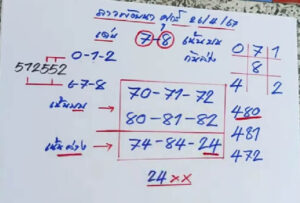 ลาวพัฒนา ศุกร์ 26/4/67
เด่น 7-8 เน้นบน
0-1-2
512552
6-7-8
0 7 1
8
4 2
เน้นบน → 70-71-72
80-81-82
เน้นล่าง → 74-84-24
480
481
472
24xx